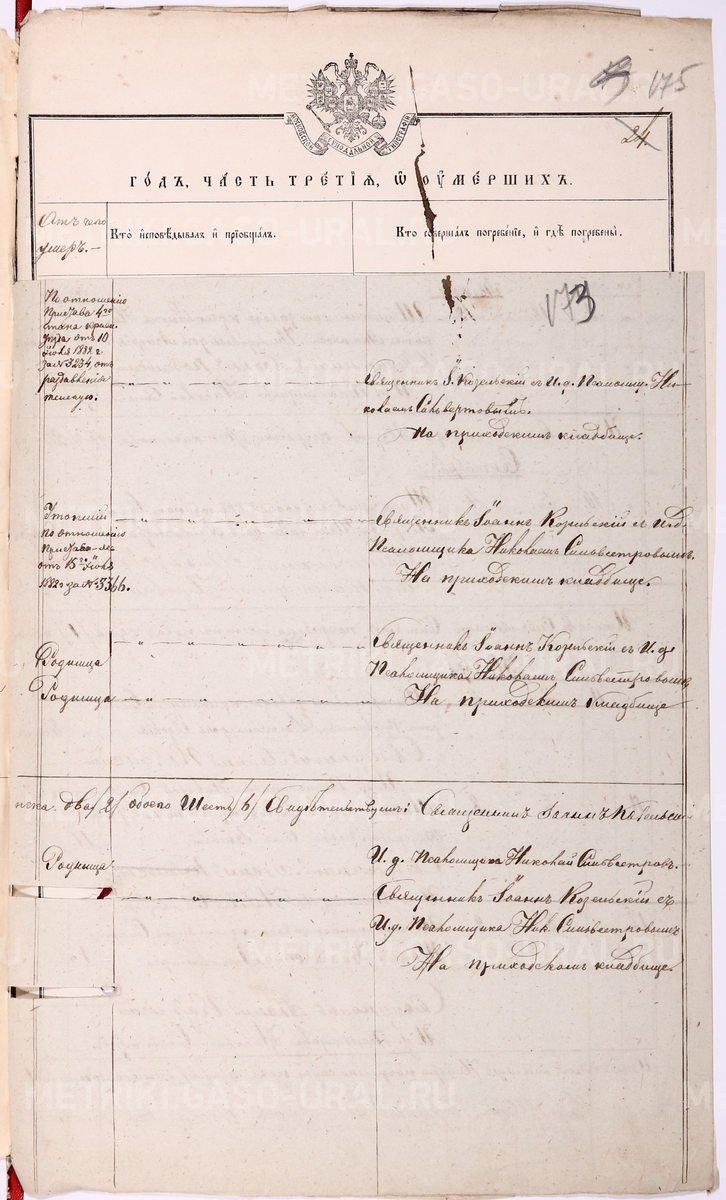 175
24
МОСКОВСКОЙ СѴНОДАЛЬНОЙ ТИПОГРАФІИ
ГОДЪ, ЧАСТЬ ТРЕТІЯ, Ѡ ОУМЕРШИХЪ.
Отъ чего умеръ.
Кто исповѣдывалъ и пріобщалъ.
Кто совершалъ погребеніе, и гдѣ погребены.
173
По отношенію
Пристава 4го
стана Красн.
уѣзда отъ 10
Іюня 1882 г
за № 3234, отъ
раздавленія
телегую.
Священникъ І. Козельскій съ И. д. Псаломщ. Ни-
колаемъ Сильвестровымъ.
На приходскомъ кладбище.
Утопшій
по отношенію
Пристава
отъ 15го Іюня
1882 г за № 3366.
Священникъ Іоаннъ Козельскій съ И.д.
Псаломщика Николаемъ Сильвестровымъ.
На приходскомъ кладбище.
Родимца
Священникъ Іоаннъ Козельскій съ И.д
Псаломщика Николаемъ Сильвестровымъ
Родимца
На приходскомъ кладбище
два /2/ обоего Шесть /6/ Свидѣтельствуемъ: Священникъ Іоаннъ Козельскій
Родимца
И. д. Псаломщика Николай Сильвестровъ.
Священникъ Іоаннъ Козельскій съ
И.д. Псаломщика Ник. Сильвестровымъ
На приходскомъ кладбище.
METRIKI.GASO-URAL.RU